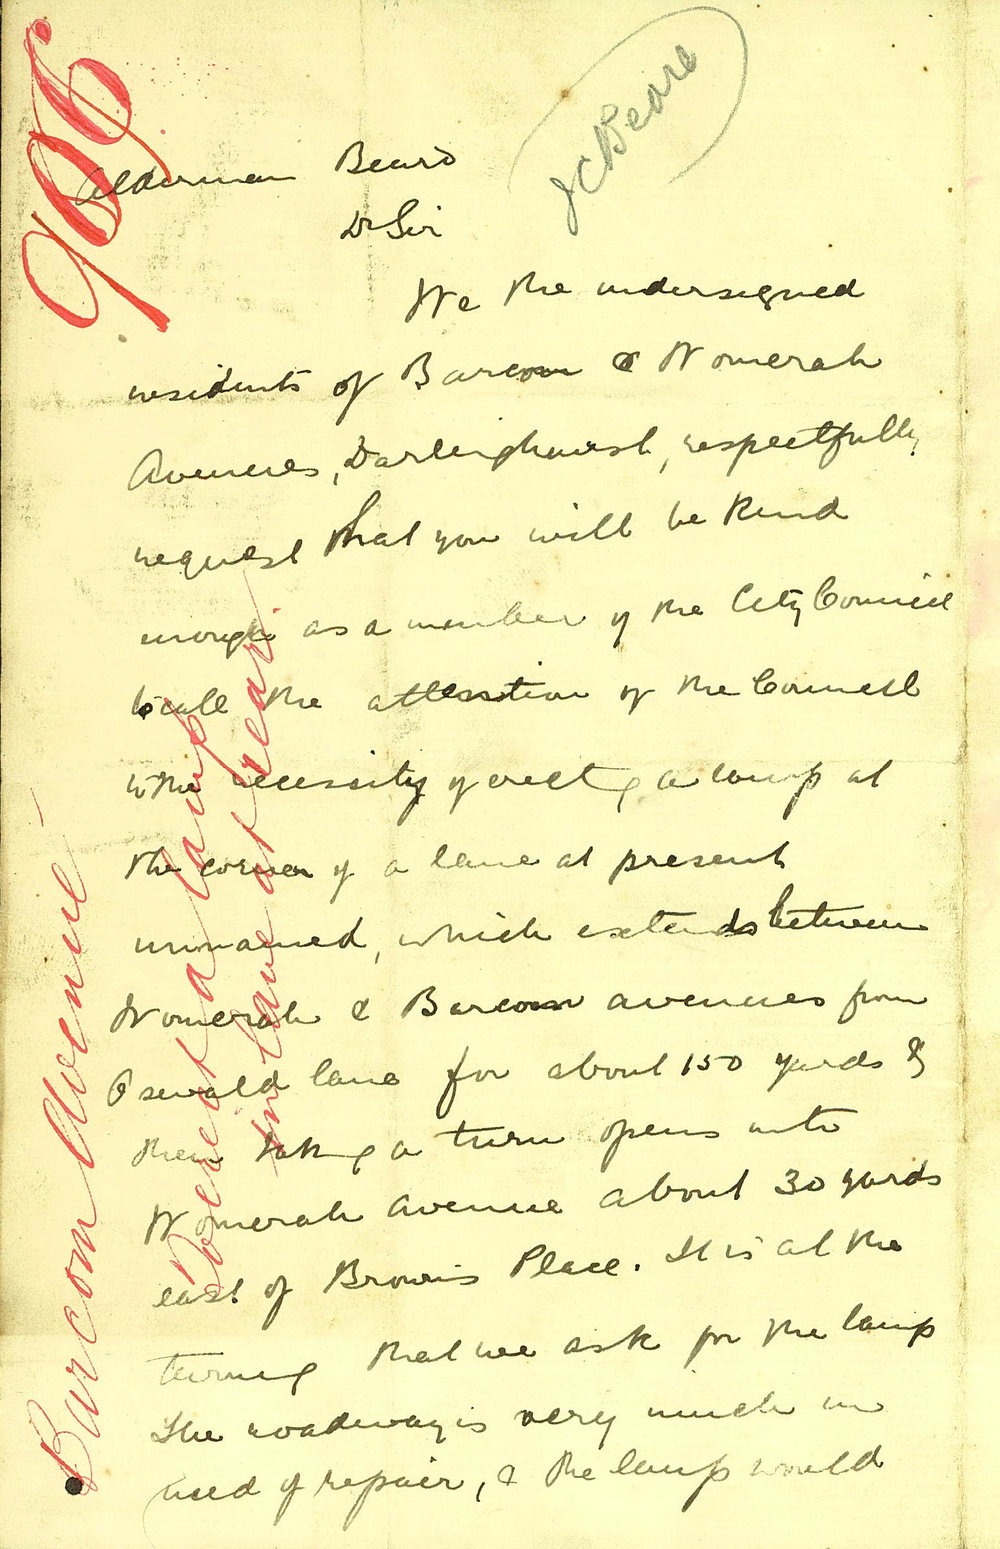 906
J C Beare
Alderman Beard
Dr Sir
We the undersigned
residents of Barcom & Womerah
Avenues, Darlinghurst, respectfully
request that you will be kind
enough as a member of the City Council
to call the attention of the Council
to the necessity of erectg a lamp at
the corner of a lane at present
unnamed, which extends between
Womerah & Barcom avenues from
Oswald lane for about 150 yards &
then takg a turn opens into
Womerah Avenue about 30 yards
east of Browns Place. It is at the
turning that we ask for the lamp
The roadway is very much in
need of repair, & the lamp would
Barcom Avenue -
To erect a lamp
in lane at rear